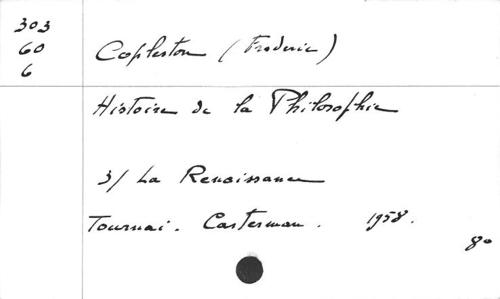 303
60
6
Copleston (Frederic)
Histoire de la Philosophie
3/ La Renaissance
Tournai. Casterman. 1958.
8°